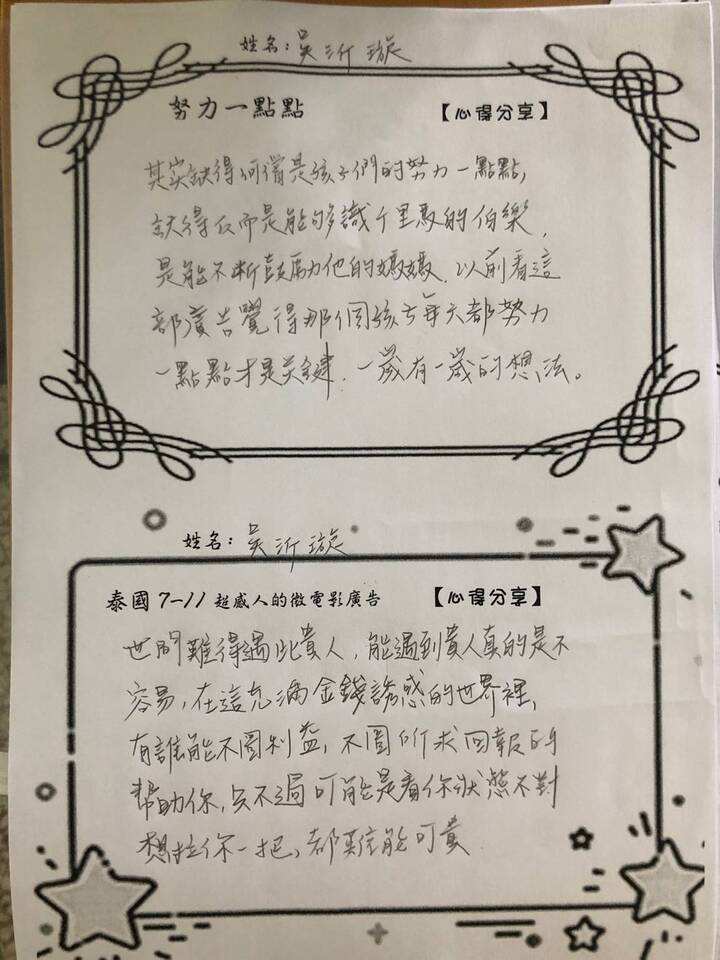 姓名：吳沂璇
努力一點點 【心得分享】
其實缺得何嘗是孩子們的努力一點點，
缺得反而是能够識千里馬的伯樂，
是能不斷鼓勵他的媽媽，以前看這
部廣告覺得那個孩子每天都努力
一點點才是关鍵，一歲有一歲的想法。
姓名：吳沂璇
泰國7-11 超感人的微電影廣告 【心得分享】
世間難得遇此貴人，能遇到貴人真的是不
容易，在這充滿金錢誘惑的世界裡，
有誰能不圖利益，不圖所求回報的
幫助你，只不過可能是看你狀態不對
想拉你一把，都難能可貴